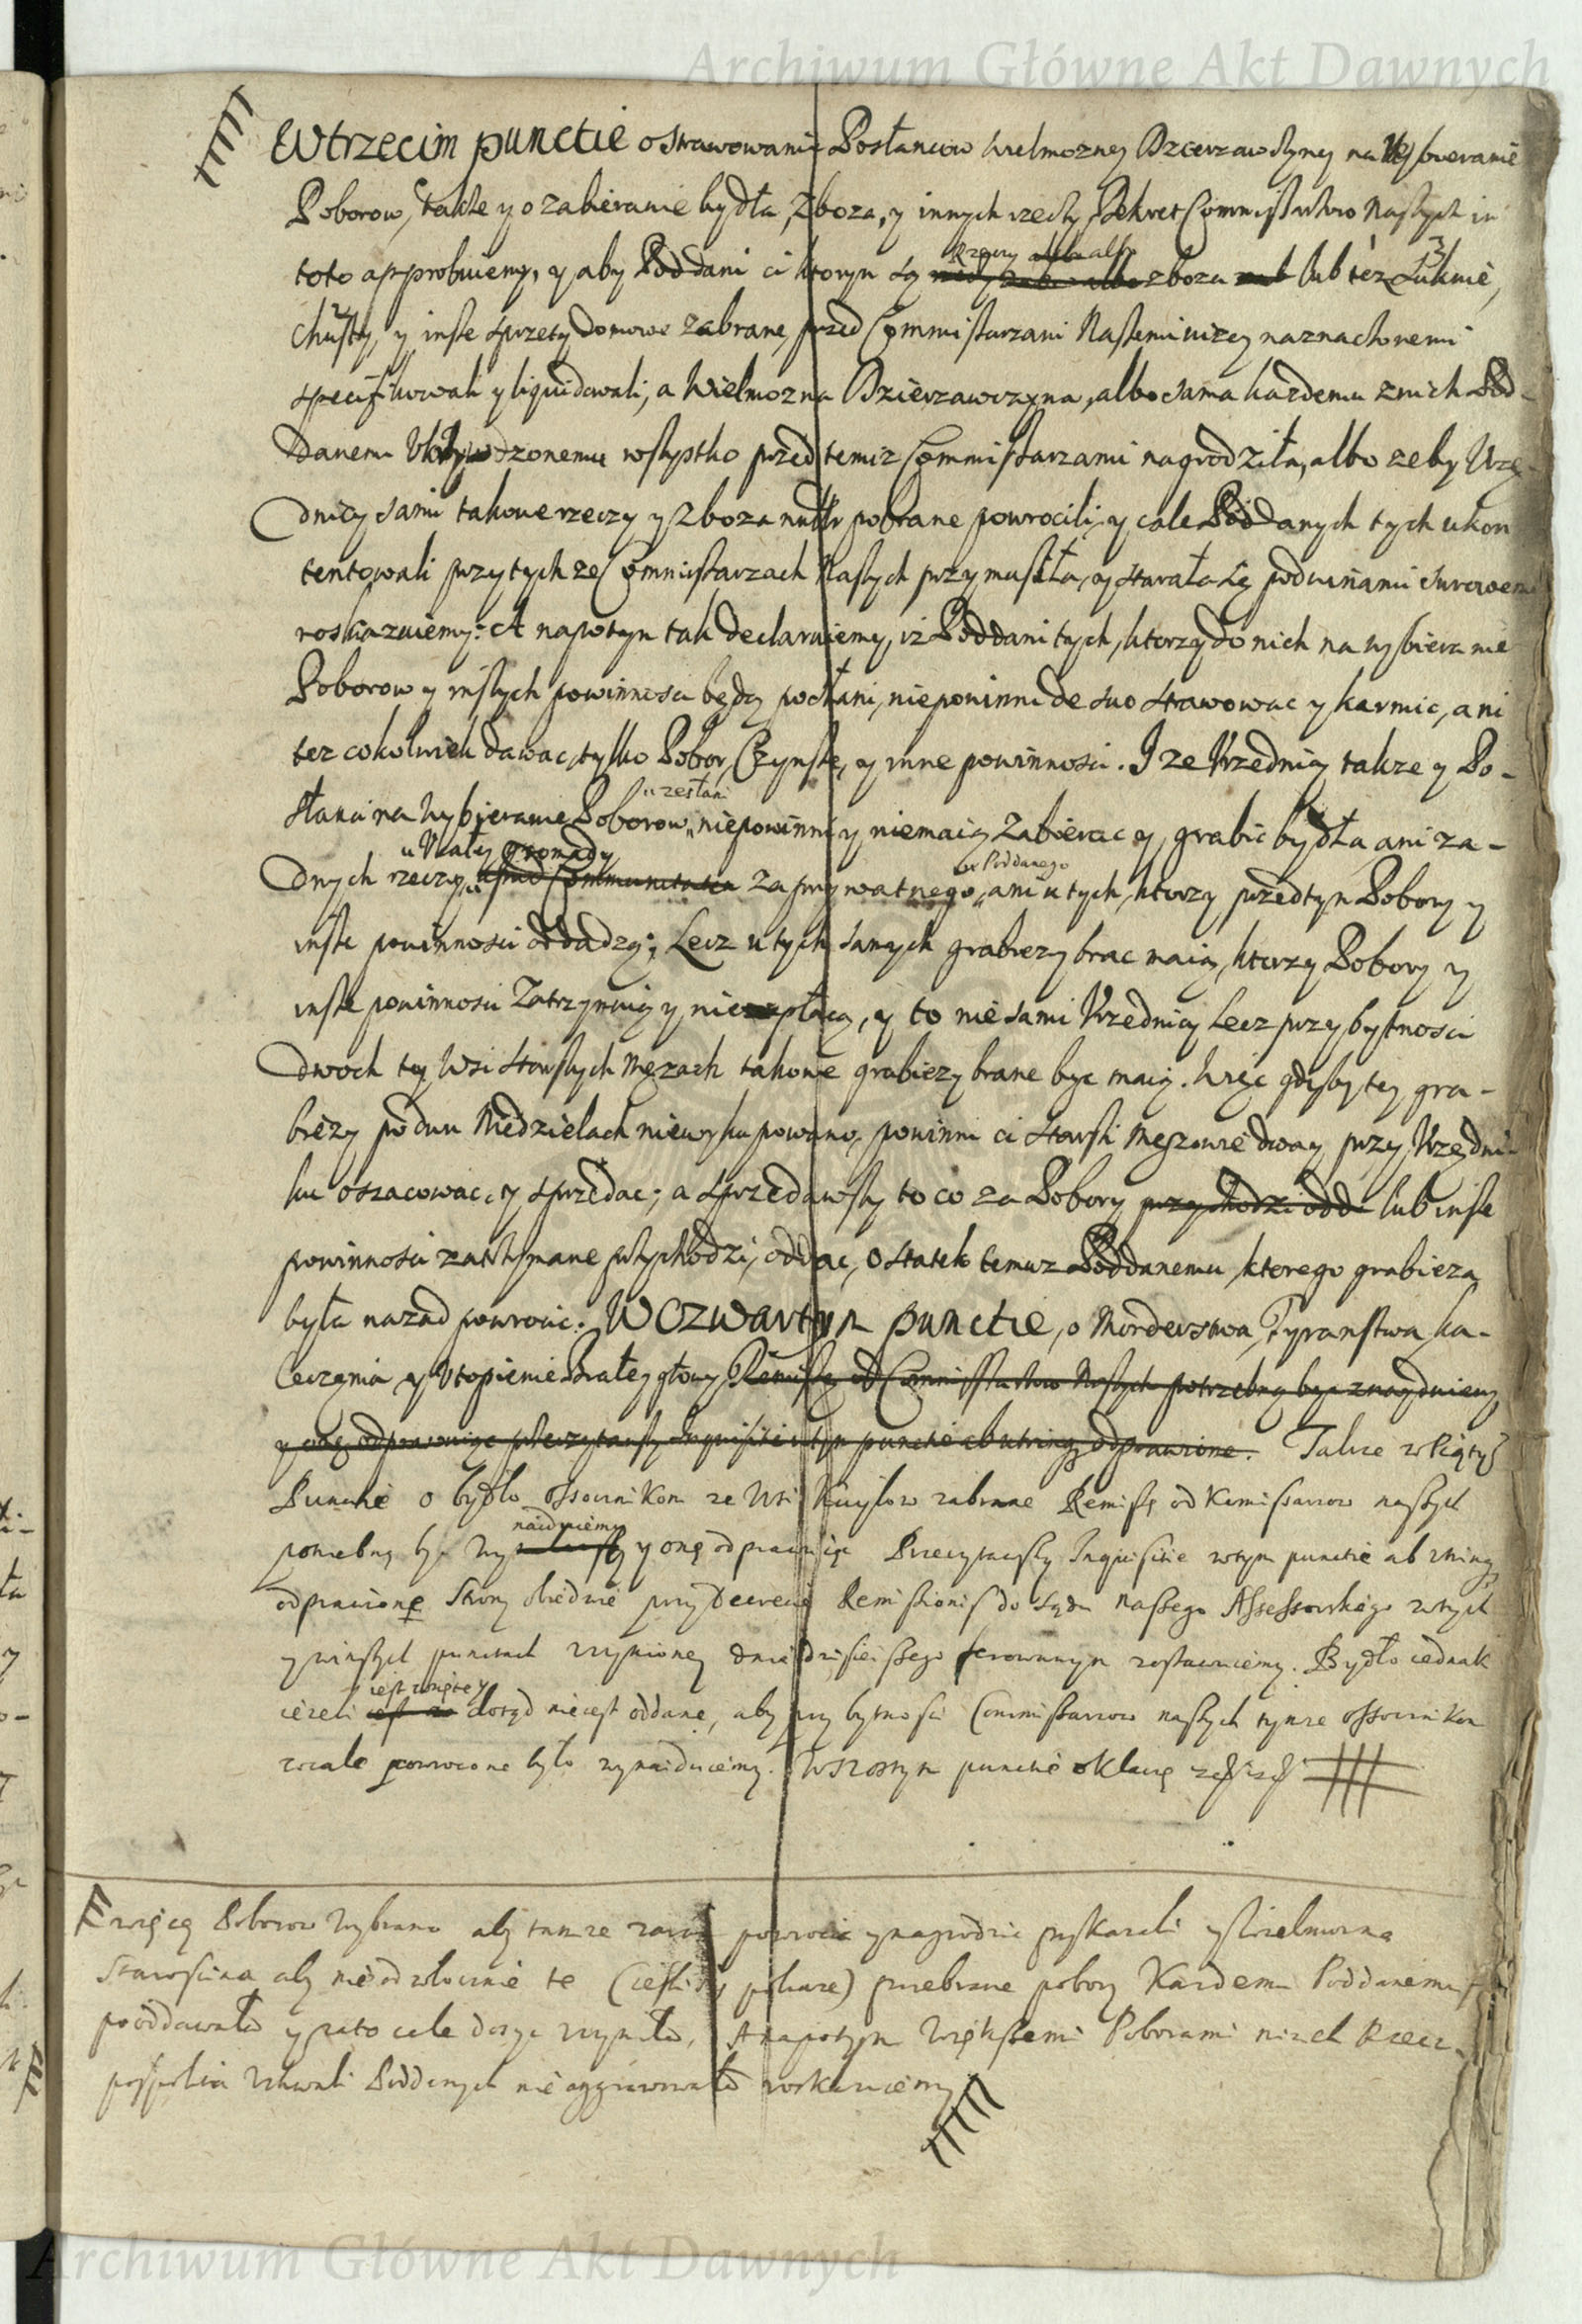 Archiwum Główne Akt Dawnych
W trzecim punctie o strawowanie Posłancow wielmozney Dzierzawczyney na wybieranie
Poborow, także y o zabieranie bydła, zboza, y innych rzeczy, Dekret Commissarzow Naszych in
toto approbuiemy, y aby Poddani ci ktorym są
Rzeczy albo
zboza lub też Suknie,
chusty, y insze sprzęty domowe zabrane, przed Commissarzami Naszemi niżey naznaczonemi
specifikowali y liquidowali, a Wielmozna Dzierzawczyna, albo sama każdemu z nich Pod-
danemu Ukrzywdzonemu wszystko przed temiz Commissarzami nagrodziła, albo zeby Urzę-
dnicy sami takowe rzeczy y zboza pobrane powrocili, y cale Poddanych tych ukon
tentowali przy tychze Commissarzach Naszych przymusiła, y starała się pod winami surowemi
roskazuiemy: A napotym tak declaruiemy, iż Poddani tych, ktorzy do nich na wybieranie
Poborow y inszych powinnosci będą posłani, niepowinni de suo strawowac y karmic, ani
tez cokolwiek dawac, tylko Pobor, Czynsze, y inne powinnosci. I ze Urzednicy takze y Po-
słani na wybieranie Poborow
zesłani
niepowinni y niemaią zabierac y grabic bydła ani za-
dnych rzeczy
u Całey gromady
apud Communitatem za prywatnego
Poddanego
ani u tych, ktorzy przedtym Pobory y
insze powinnosci oddadzą; Lecz u tych samych grabiezy brac maią, ktorzy Pobory y
insze powinnosci zatrzymaią y nie płacą, y to nie sami Urzednicy Lecz przy bytnosci
dwoch tey Wsi starszych Męzach takowe grabiezy brane byc maią. Więc gdyby tey gra-
biezy po dwu Niedzielach niewykupowano, powinni ci starsi Męzowie dway przy Urzędni-
ku oszacowac, y sprzedac; a sprzedawszy to co za Pobory przychodzi odd lub insze
powinnosci zatrzymane przychodzi, oddac, ostatek temuz Poddanemu, ktorego grabieza
była nazad powrocic. W Czwartym punctie, o Morderstwa, Tyranstwa, ka-
leczenia y Utopienie Białey głowy Remissę od Commissarzow Naszych potrzebną byc znayduiemy
y onę odprawuiąc przeczytawszy Inquisitie w tym punctie ab utrinq odprawione. Takze w Piątym
Punctie o bydło Ossocznikom ze Wsi zabrane Remissę od Kommissarzow naszych
potrzebną byc
naiduiemy
y onę odprawuiąc Przeczytawszy Inquisitie w tym punctie ab utrinq
odprawione Strony obiedwie przy Decrecie Remissionis do Sądu naszego Assessorskiego w tych
y inszych punctach uczynioney dnia dzisieiszego ferowanym zostawuiemy. Bydło iednak
iezeli
iest wzięte y
dotąd nie iest oddane, aby przy bytnosci Commissarzow naszych tymze Ossocznikom
wcale powrocone było wynaiduiemy. W Szostym punctie
więcey Poborow wybrano aby tamze zaraz powrocic y nagrodzic y Wielmozna
Starościna aby nieodwłocznie te (ieśli się pokaze) przebrane pobory Kazdemu Poddanemu
pooddawała y za to cale dosyc uczyniła, A napotym większemi Poborami nizeli Rzecz-
pospolita Uchwali Poddanych nie aggrawowała roskazuiemy
Archiwum Główne Akt Dawnych